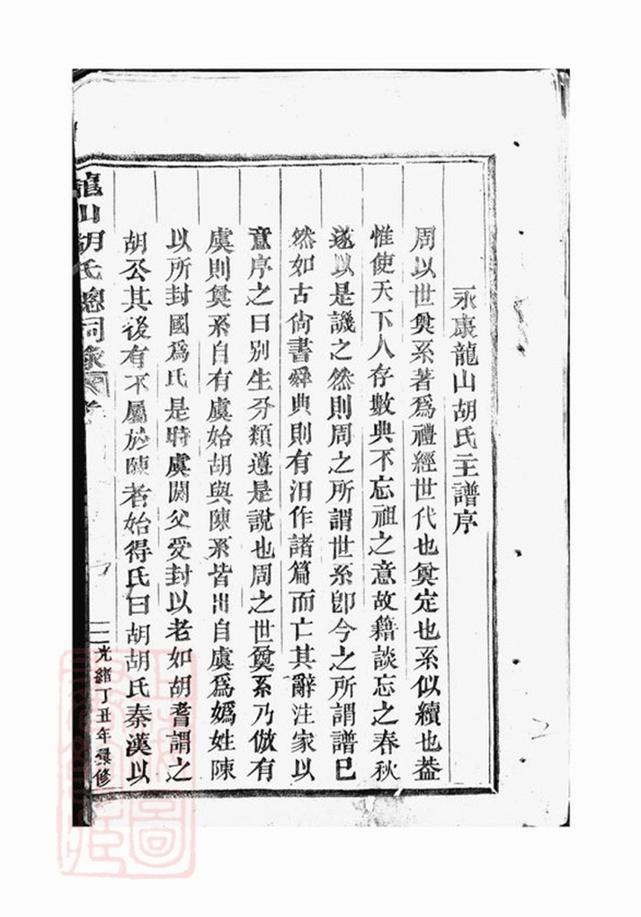 永康龍山胡氏主譜序
周以世奠系著爲禮經世代也奠定也系似續也葢
惟使天下人存數典不忘祖之意故籍談忘之春秋
遂以是譏之然則周之所謂世系卽今之所謂譜巳
然如古尙書舜典則有汨作諸篇而亡其辭注家以
意序之曰別生分類遵是說也周之世奠系乃倣有
虞則奠系自有虞始胡與陳系皆出自虞爲嬀姓陳
以所封國爲氏是時虞閼父受封以老如胡耆謂之
胡公其後有不屬於陳者始得氏曰胡胡氏秦漢以
龍山胡氏總祠
光緒丁丑年彙修